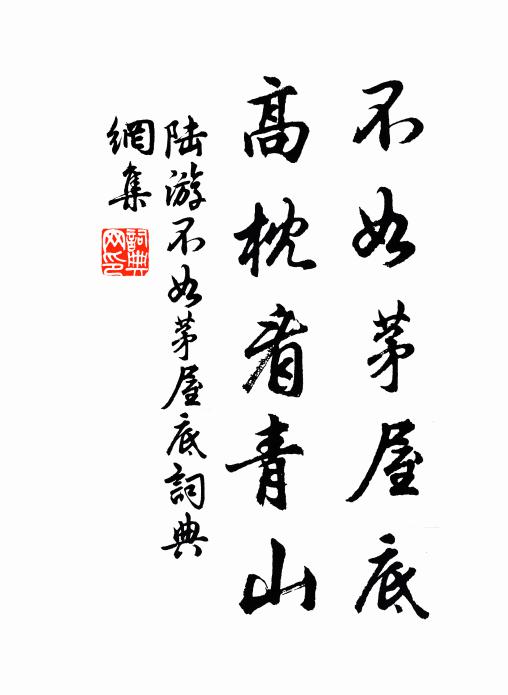 不如茅屋底
高枕看青山
陆游不如茅屋底詞典
網集
詞典網印